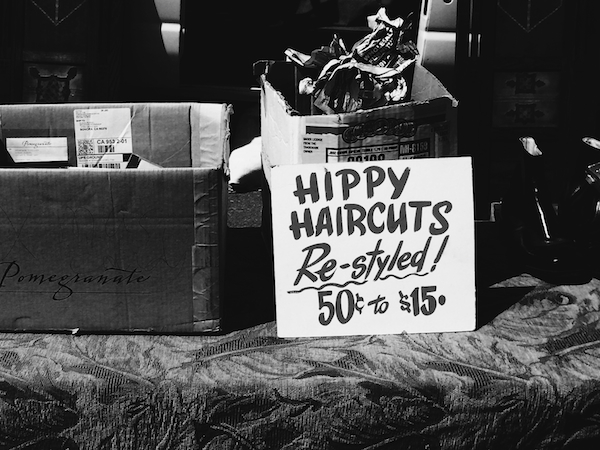 HIPPY
HAIRCUTS
Re-styled!
50¢ to $15.
Pomegranate
CA 952 2-01